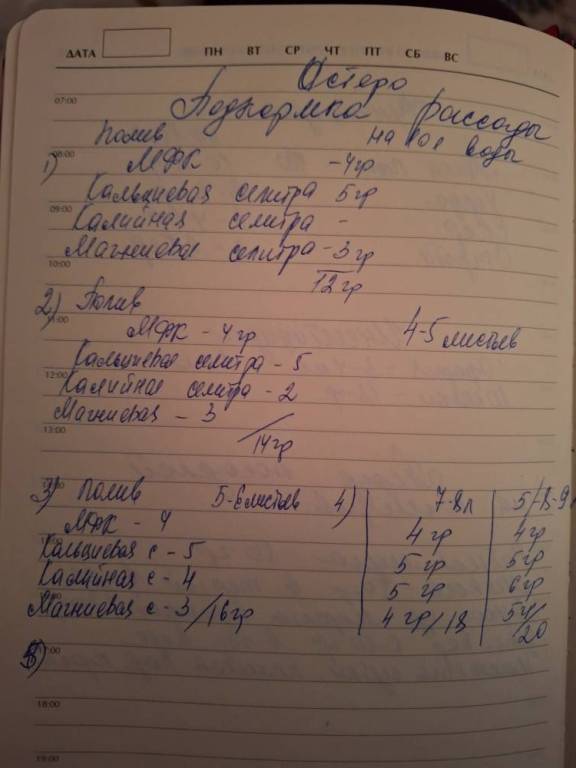 ДАТА ПН ВТ СР ЧТ ПТ СБ ВС
Остеро
07:00
Подкормка рассады
Полив на 10 л воды
08:00
1) МФК - 4гр
Кальциевая селитра 5гр
09:00
Калийная селитра -
Магниевая селитра - 3гр
10:00
12гр
2) Полив
11:00
МФК - 4гр 4-5 листьев
Кальциевая селитра - 5
12:00
Калийная селитра - 2
Магниевая - 3
13:00
/14гр
3) Полив 5-6 листьев 4) 7-8л 5/8-9л
МФК - 4 4гр 4гр
Кальциевая с - 5 5гр 5гр
Калийная с - 4 5гр 6гр
Магниевая с - 3/16гр 4гр/18 5гр/20
17:00
18:00
19:00